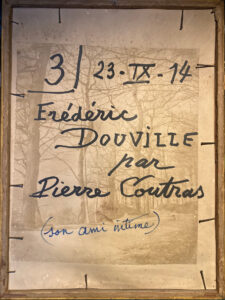 3 | 23 - IX - 14
Frédéric
DOUVILLE
par
Pierre Coutras
(son ami intime)